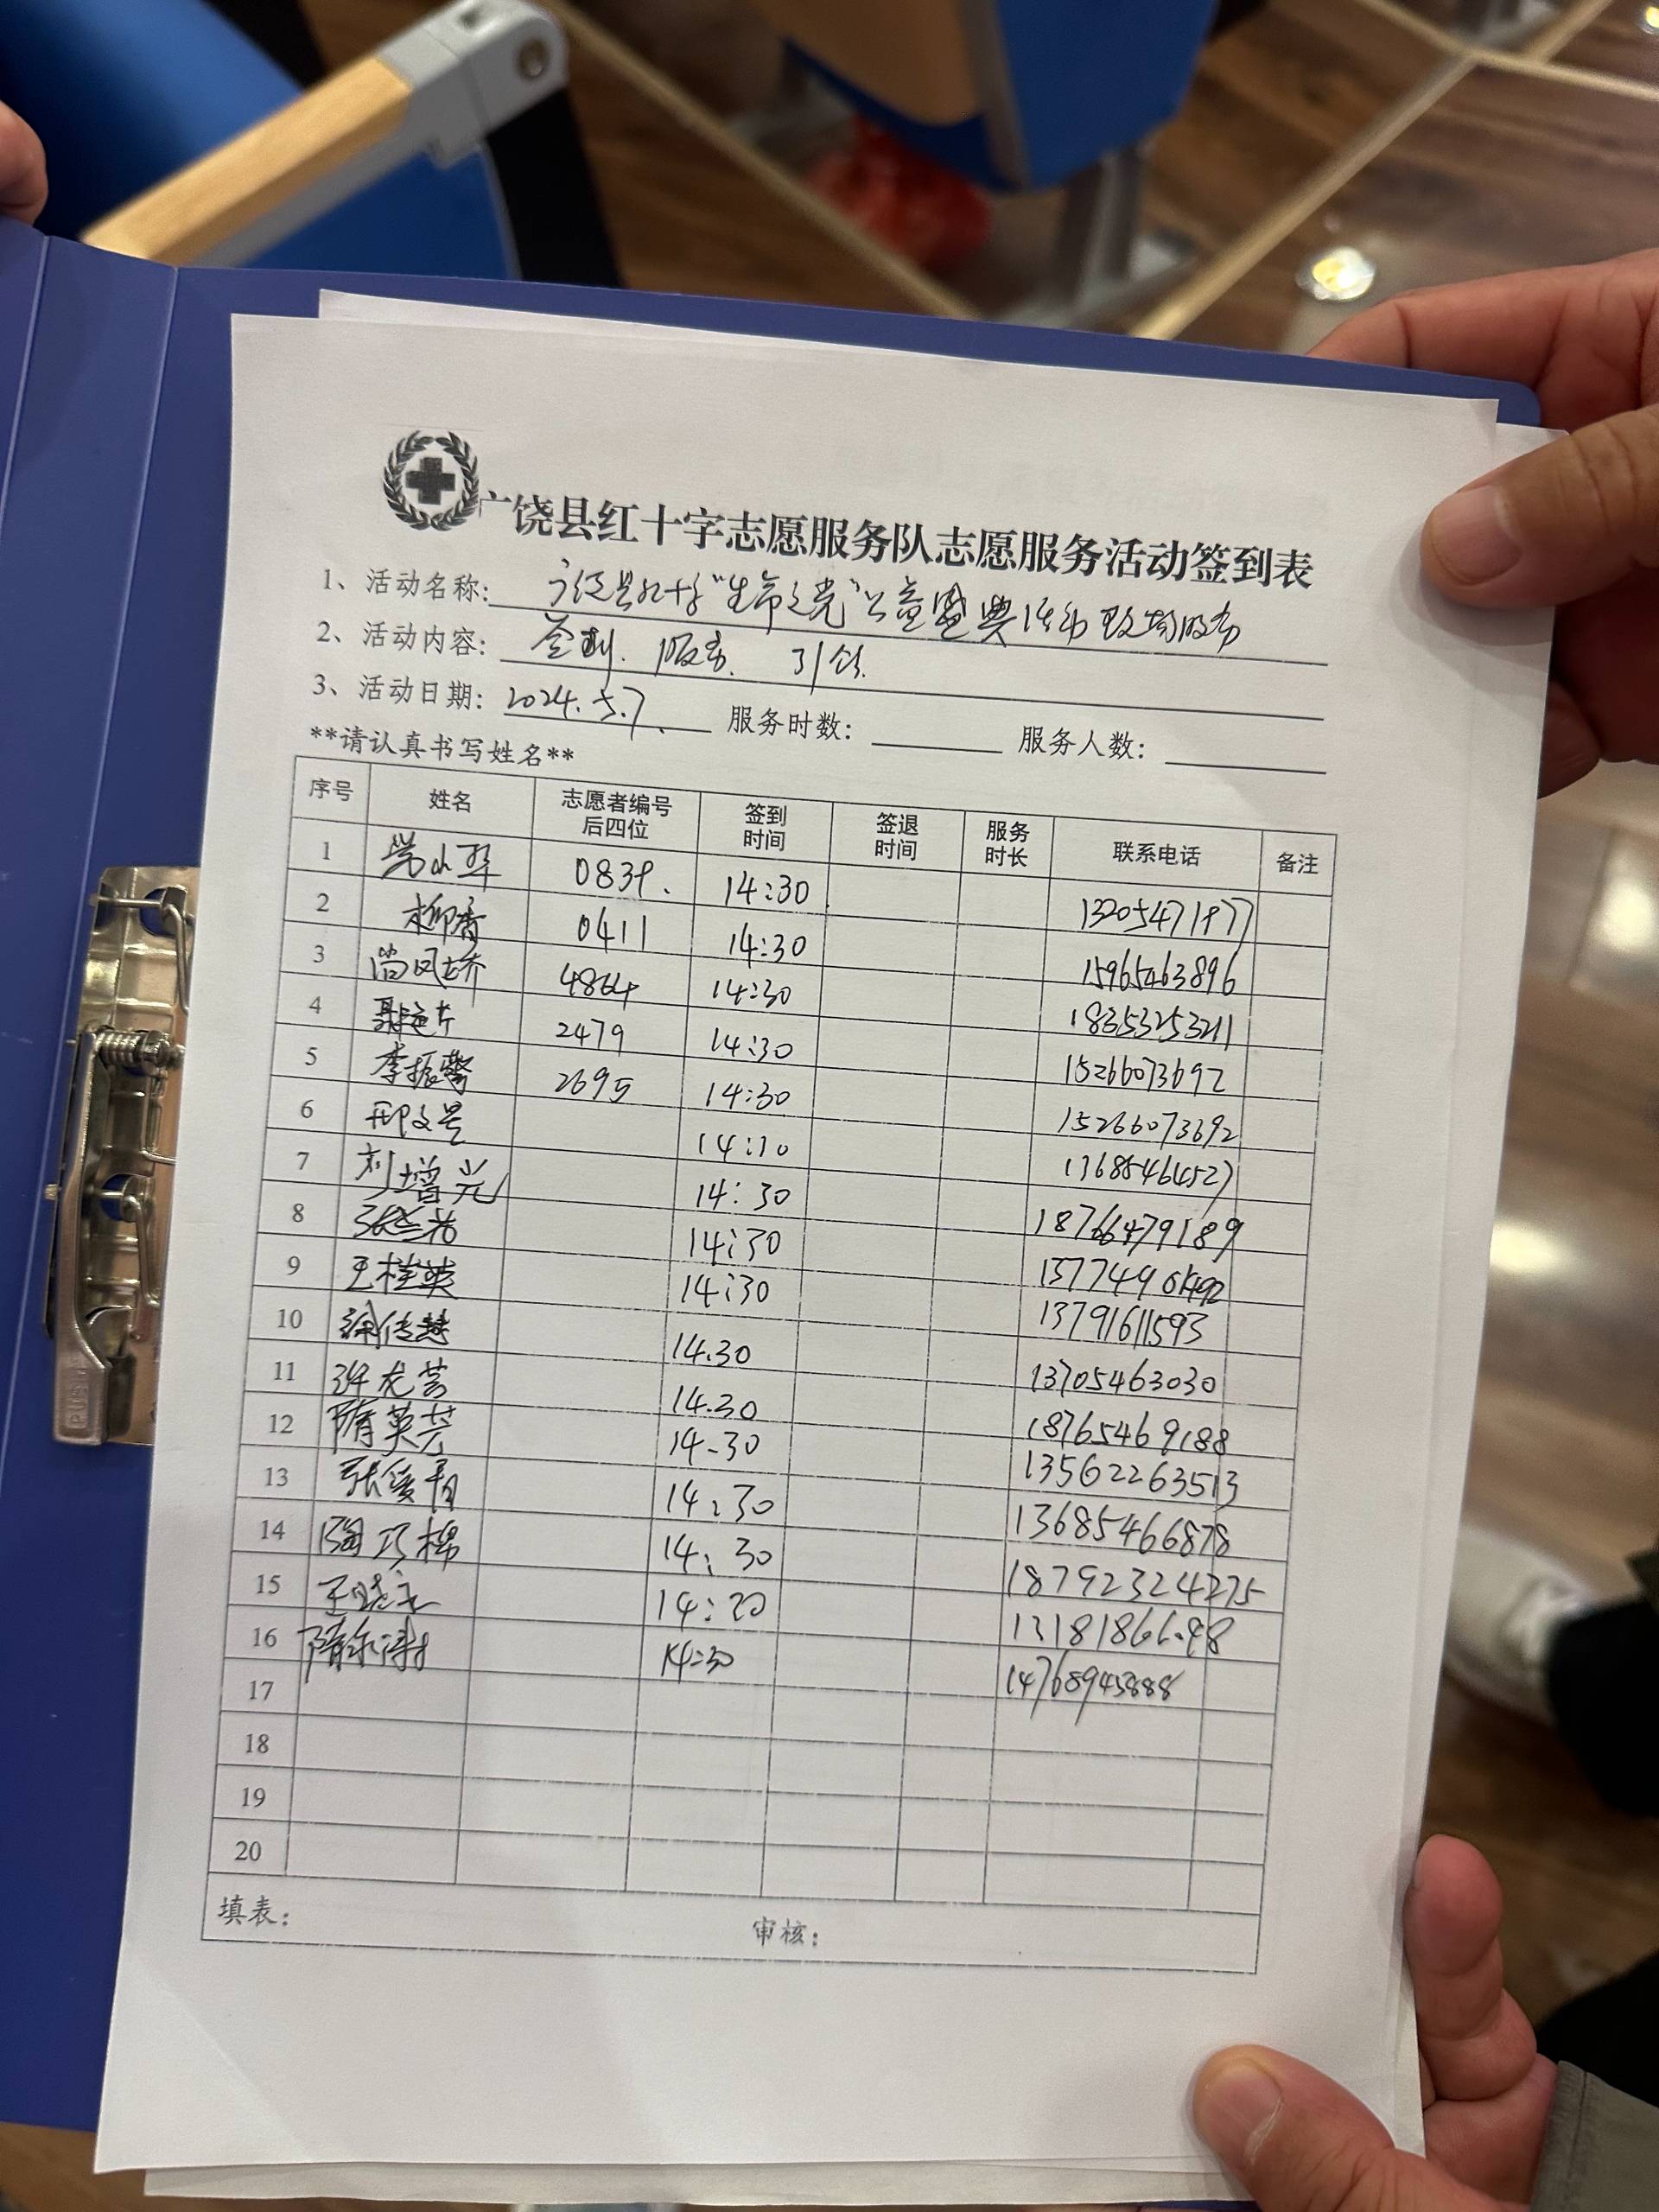 广饶县红十字志愿服务队志愿服务活动签到表
1、活动名称: 广饶县红十字"生命之光"公益盛典活动现场服务
2、活动内容: 签到. 服务. 引领.
3、活动日期: 2024.5.7. 服务时数: 服务人数:
**请认真书写姓名**
序号 姓名 志愿者编号后四位 签到时间 签退时间 服务时长 联系电话 备注
1 0839. 14:30 13205471977
2 柳香 0411 14:30 15965463896
3 尚凤娇 4864 14:30 18353253211
4 2479 14:30 15266073692
5 李振 2695 14:30 15266073692
6 邢文 14:10 13685464527
7 刘增光 14:30 18766479189
8 14:30
9 王桂英 14:30 13791611593
10 徐传慧 14.30 13705463030
11 许龙芸 14.30 18765469188
12 隋英芳 14-30 13562263513
13 张爱青 14:30 13685466878
14 陶巧棉 14:30 18792324275
15 王晓 14:20
16 隋 14:30 14768945888
17
18
19
20
填表: 审核: